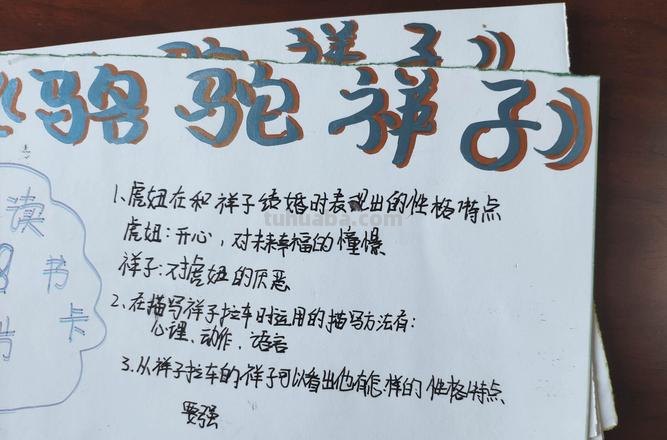 骆驼祥子》
《骆驼祥子》
读
书
卡
1、虎妞在和祥子结婚时表现出的性格特点
虎妞:开心,对未来幸福的憧憬
祥子:对虎妞的厌恶
2、在描写祥子拉车时运用的描写方法有:
心理、动作、语言
3、从祥子拉车的祥子可以看出他有怎样的性格特点
要强
tuhuaba.com